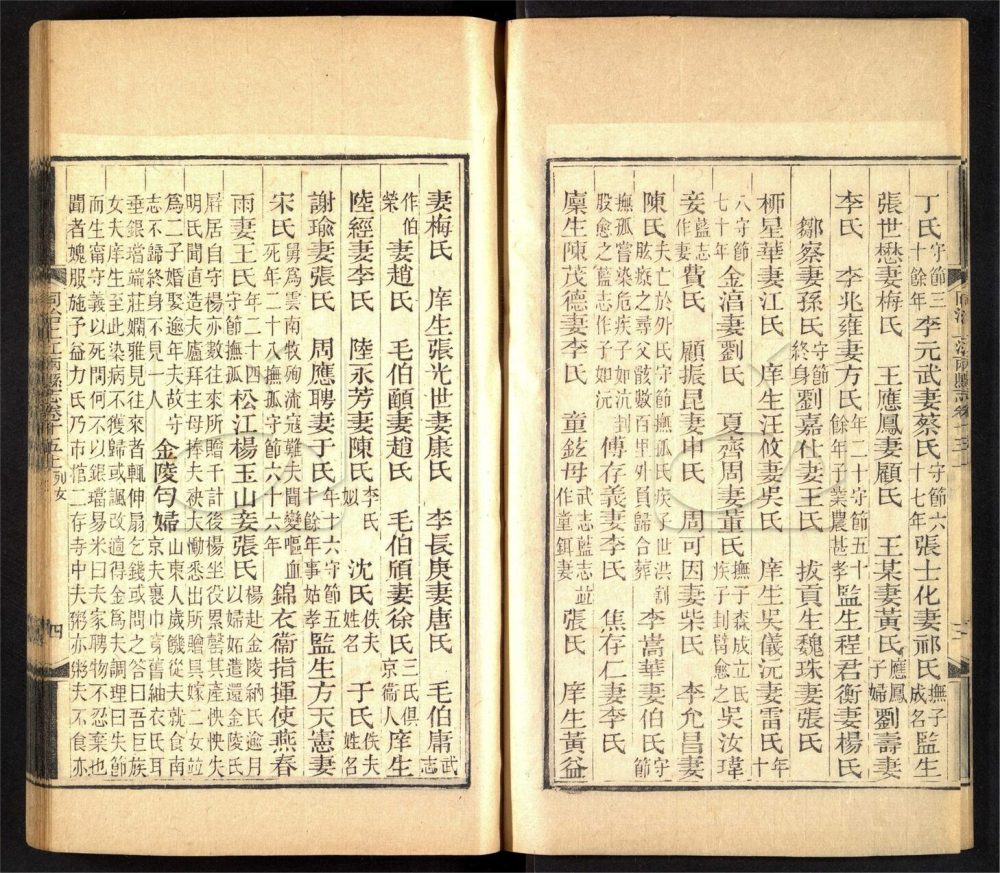 丁氏守節三十餘年李元武妻蔡氏守節六十七年張士化妻祁氏撫子成名監生
張世懋妻梅氏　王應鳳妻顧氏　王某妻黃氏應鳳子婦劉壽妻
李氏　李兆雍妻方氏年二十守節五十餘年子業農甚孝監生程君衡妻楊氏
鄒察妻孫氏守節終身劉嘉仕妻王氏　拔貢生魏珠妻張氏
桺星華妻江氏　庠生汪攸妻吳氏　庠生吳儀沅妻雷氏年十
八守節七十年金淐妻劉氏　夏齊周妻董氏撫子森成立氏疾子封臂愈之吳汝瑋
妾藍志作妻費氏　顧振昆妻申氏　周可因妻柴氏　李允昌妻
陳氏夫亡於外氏守節撫孤氏疾子世洪割股療之尋父骸數百里外負歸合葬李嵩華妻伯氏守節
撫孤嘗染危疾子如沆刲股愈之藍志作子如沅傅存義妻李氏　焦存仁妻李氏
廩生陳茂德妻李氏　童鉉母武志藍志竝作童鉺妻張氏　庠生黃益
妻梅氏　庠生張光世妻康氏　李長庚妻唐氏　毛伯庸武志
作伯榮妻趙氏　毛伯顱妻趙氏　毛伯頎妻徐氏三氏俱京衞人庠生
陸經妻李氏　陸永芳妻陳氏李氏姒　沈氏佚夫姓名　于氏佚夫姓名
謝瑜妻張氏　周應聘妻于氏年十六守節五十餘年事姑孝監生方天憲妻
宋氏舅爲雲南牧殉流寇難夫聞變嘔血死年二十八撫孤守節六十六年錦衣衞指揮使燕春
雨妻王氏年二十四守節撫孤松江楊玉山妾張氏楊赴金陵納氏逾月以婦妬遣還金陵氏
屛居自守楊亦數往來所贈千計後楊坐役累罄其產怏怏失
明氏聞直造夫廬拜主母捧夫袂大慟悉出所贈具嫁二女竝
爲二子婚娶逾年夫故守志不歸終身不見一人金陵匄婦山東人歲饑從夫就食南京夫裹巾曳舊紬衣氏耳
垂銀璫端莊嫻雅見往來者輒伸扇乞錢或問之答曰吾巨族
女夫庠生至此染病不獲歸或諷改適得金爲夫調理曰失節
而生甯守義以死問何不以銀璫易米曰夫家聘物不忍棄也
聞者媿服施予益力氏乃市棺二存寺中夫粥亦粥夫不食亦
同治上江兩縣志卷十五上列女
四